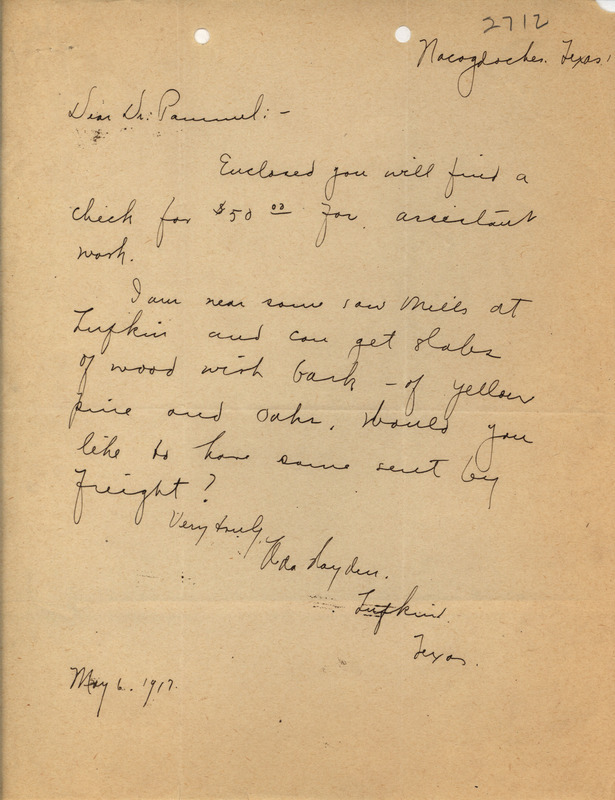 2712
Nacogdoches, Texas.
Dear Dr. Pammel: -
Enclosed you will find a
check for $50 00 for assistant
work.
I am near some saw mills at
Lufkin and can get slabs
of wood with bark - of yellow
pine and oaks. Would you
like to have some sent by
freight?
Very truly,
Ada Hayden.
Lufkin.
Texas.
May 6. 1917.